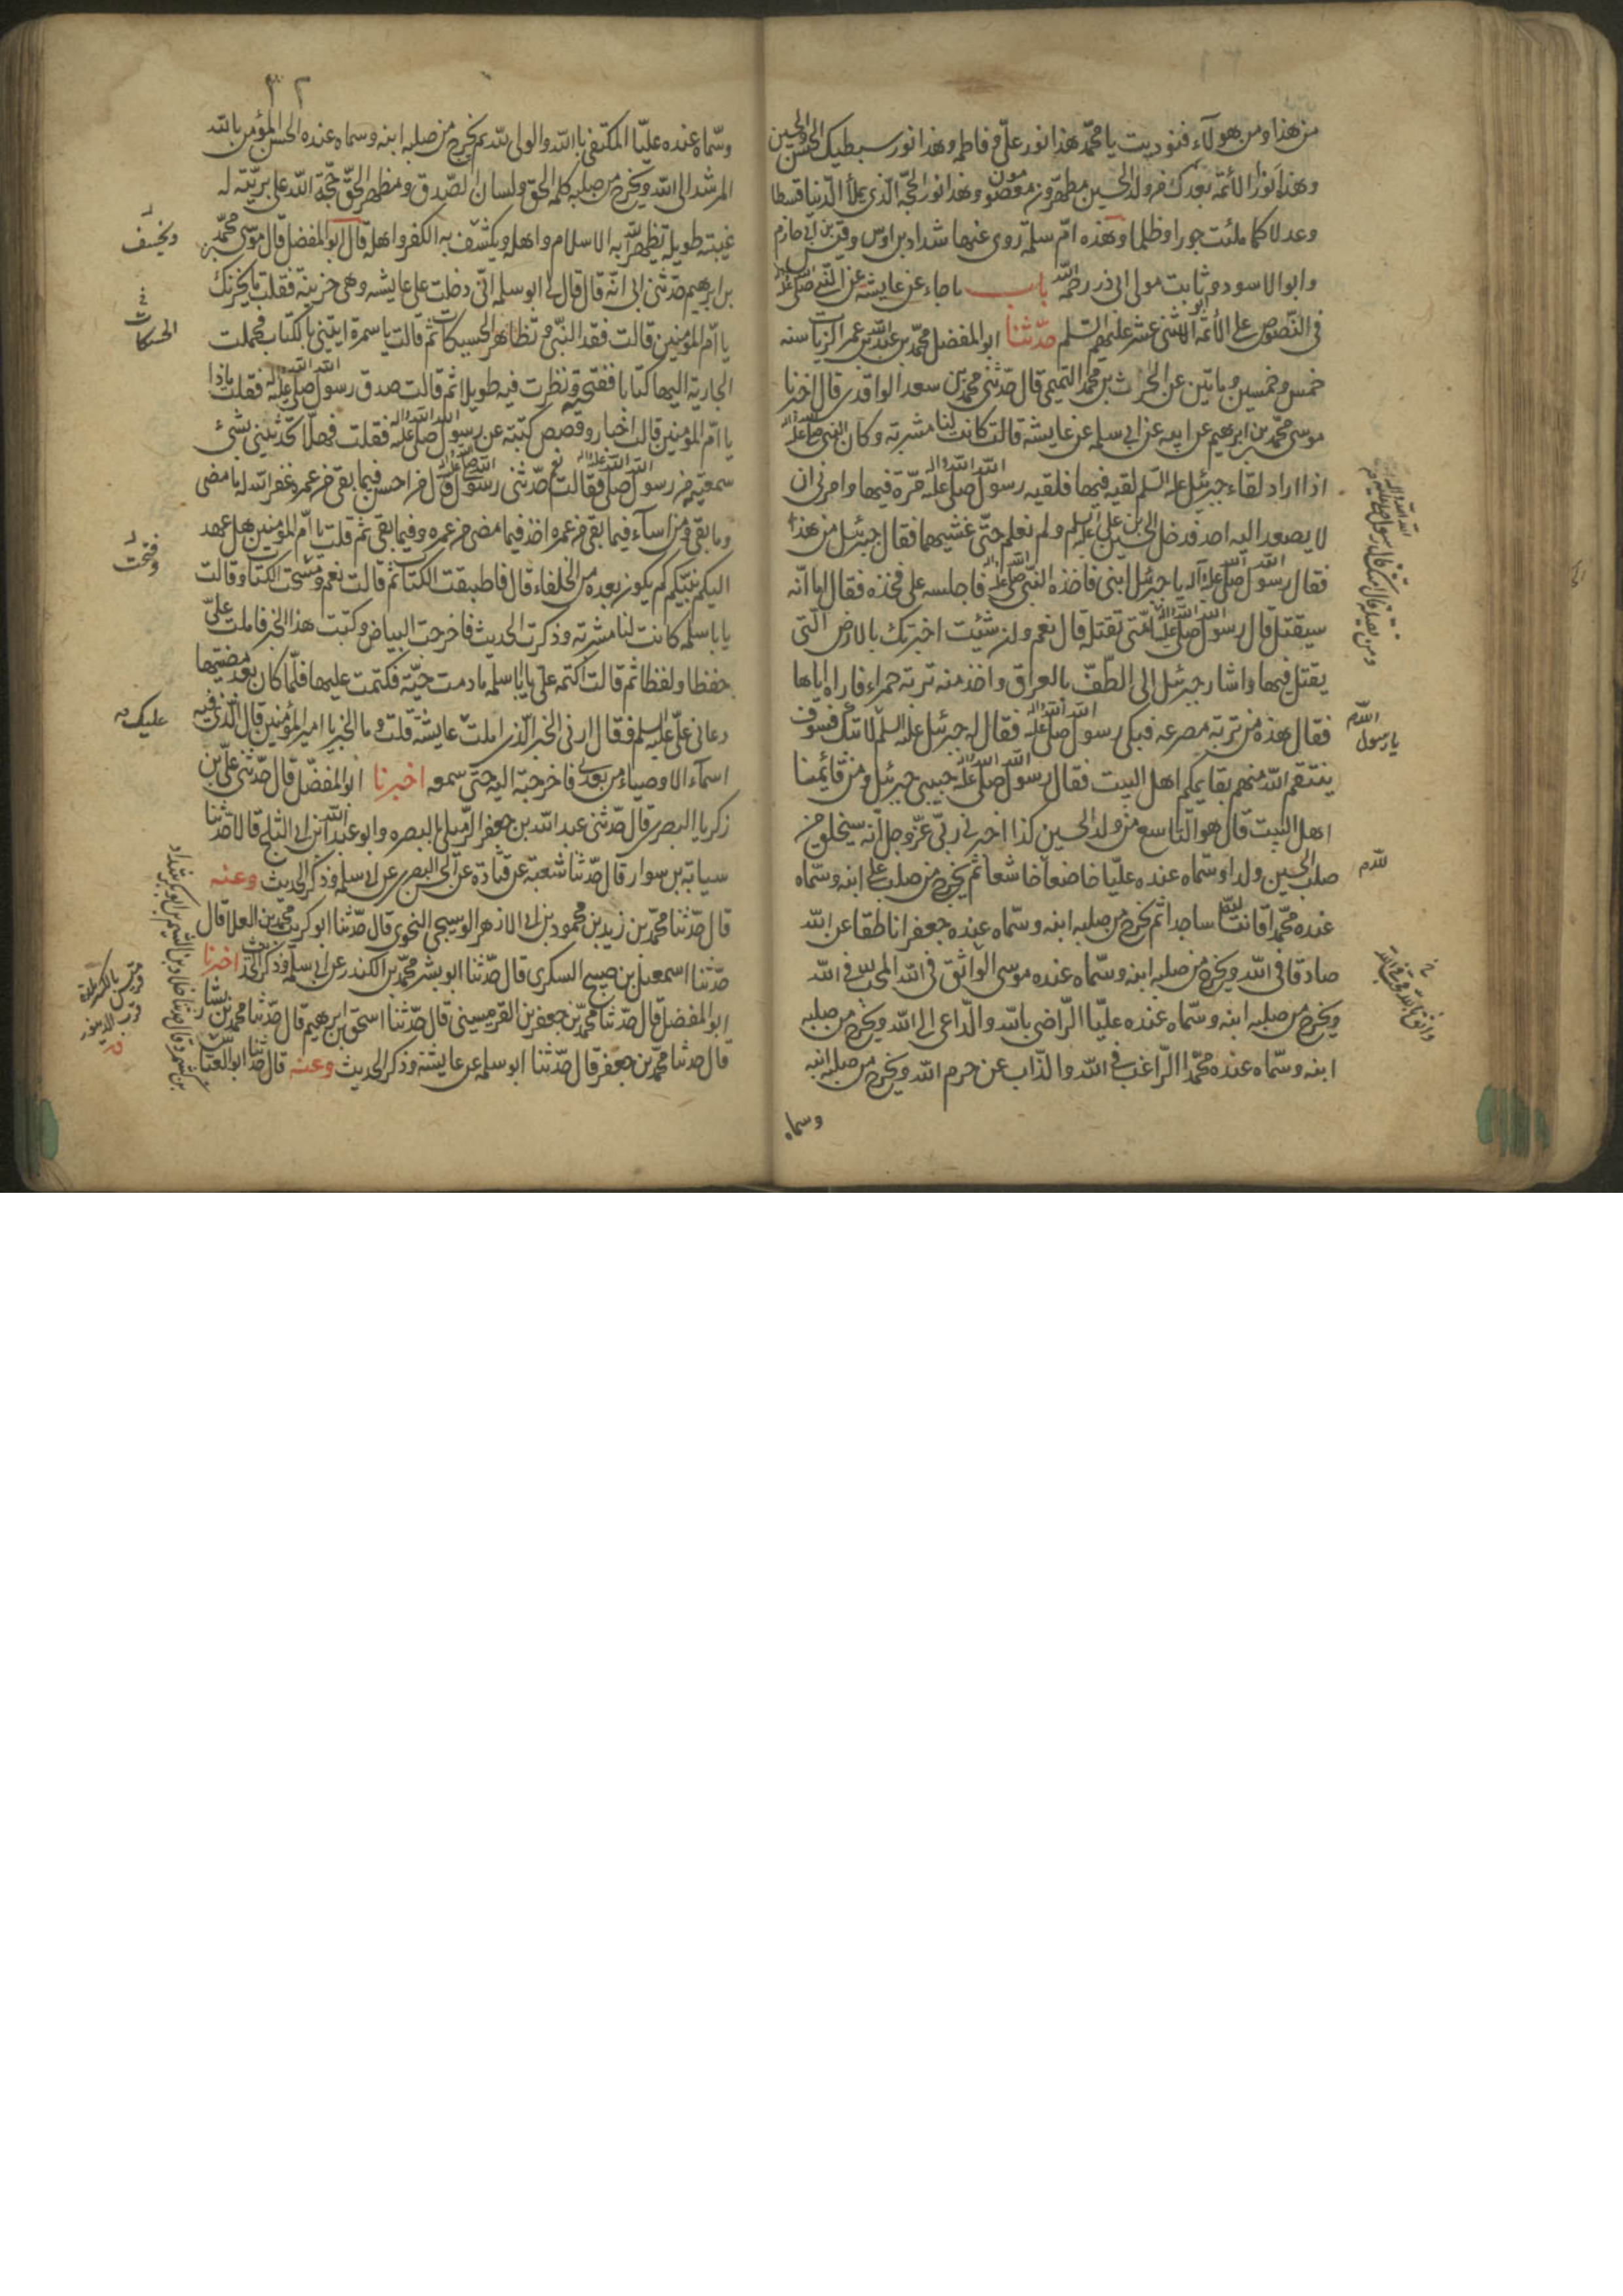 من هذا ومن هولاء فنوديت يا محمد هذا نور علي وفاطمه وهذا نور سبطيك الحسن والحسين
وهذا نور الأئمة بعدك من ولد الحسين مطهرون معصومون وهذا نور الحجة الذي يملأ الدنيا قسطا
وعدلا كما ملئت جورا وظلما وهذه ام سلمة روى عنها شداد بن اوس وقيس بن ابي حازم
وابو الاسود وابو ثابت مولى ابي ذر رحمه الله باب ما جاء عن عايشة عن النبي صلى الله عليه وآله
في النصوص على الأئمة الاثني عشر عليهم السلم حدثنا ابو المفضل محمد بن عبد الله بن عمر الزيات سنه
خمس وخمسين وماتين عن الحرث بن محمد التميمي قال حدثني محمد بن سعد الواقدي قال اخبرنا
موسى بن محمد بن ابرهيم عن ابيه عن ابي سلمه عن عايشة قالت كانت لنا مشربة وكان النبي صلى الله عليه وآله
اذا اراد لقاء جبرئيل عليه السلم لقيه فيها فلقيه رسول الله صلى الله عليه وآله مرة فيها وامرني ان
لا يصعد اليه احد فدخل الحسين بن علي عليه السلم ولم نعلم حتى غشيها فقال جبرئيل من هذا
فقال رسول الله صلى الله عليه وآله يا جبرئيل ابني فاخذه النبي صلى الله عليه فاجلسه على فخذه فقال اما انه
سيقتل قال رسول الله صلى الله عليه وآله امتي تقتله قال نعم وان شئت اخبرتك بالارض التي
يقتل فيها واشار جبرئيل الى الطف بالعراق واخذ منه تربة حمراء فاراه اياها
فقال هذه من تربة مصرعه فبكى رسول الله صلى الله عليه وآله فقال له جبرئيل عليه السلم لا تبك فسوف
ينتقم الله منهم بقايمكم اهل البيت فقال رسول الله صلى الله عليه وآله حبيبي جبرئيل ومن قائمنا
اهل البيت قال هو التاسع من ولد الحسين كذا اخبرني ربي عز وجل انه سيخلق من
صلب الحسين ولدا وسماه عنده عليا خاضعا خاشعا ثم يخرج من صلب علي ابنه وسماه
عنده محمدا قانتا لله ساجدا ثم يخرج من صلبه ابنه وسماه عنده جعفرا ناطقا عن الله
صادقا في الله ويخرج من صلبه ابنه وسماه عنده موسى الواثق في الله المحب في الله
ويخرج من صلبه ابنه وسماه عنده عليا الراضي بالله والداعي الى الله ويخرج من صلبه
ابنه وسماه عنده محمدا الراغب في الله والذاب عن حرم الله ويخرج من صلبه ابنه
وسماه
يا رسول الله م
لله م
وسماه عنده عليا المكتفي بالله والولي لله ثم يخرج من صلبه ابنه وسماه عنده الحسن المؤمن بالله
المرشد الى الله ويخرج من صلبه كلمه الحق ولسان الصدق ومظهر الحق حجة الله على بريته له
غيبته طويله تظهر الله به الاسلام واهله ويكشف به الكفر واهله قال ابو المفضل قال موسى بن محمد
بن ابرهيم حدثني ابي انه قال قال لي ابو سلمه اني دخلت على عايشه وهي حزينة فقلت ما يحزنك
يا ام المؤمنين قالت فقد النبي م وتظاهر الحسيكات ثم قالت يا سمرة ايتيني بالكتاب فحملت
الجارية اليها كتابا ففتحته ونظرت فيه طويلا ثم قالت صدق رسول الله صلى الله عليه وآله فقلت ماذا
يا ام المؤمنين قالت اخبار وقصص كتبته عن رسول الله صلى الله عليه وآله فقلت فهلا تحدثيني بشئ
سمعتيه من رسول الله صلى الله عليه وآله فقالت نعم حدثني رسول الله صلى الله عليه وآله قال من احسن فيما بقي من عمره غفر الله له ما مضى
وما بقي ومن اساء فيما بقي من عمره اخذ فيما مضى من عمره وفيما بقي ثم قلت يا ام المؤمنين هل عهد
اليكم نبيكم كم يكون بعده من الخلفاء قال فاطبقت الكتاب ثم قالت نعم وفتحت الكتاب وقالت
يا با سلمه كانت لنا مشربة وذكرت الحديث فاخرجت البياض وكتبت هذا الخبر فاملت علي
حفظا ولفظا ثم قالت اكتمه علي يا با سلمه ما دمت حية فكتمت عليها فلما كان بعد مضيها
دعاني علي عليه السلم فقال ارني الخبر الذي املت عايشة قلت وما الخبر يا امير المؤمنين قال الذي فيه
اسماء الاوصياء من بعدي فاخرجته اليه حتى سمعه اخبرنا ابو المفضل قال حدثني علي بن
زكريا البصري قال حدثني عبد الله بن جعفر الرملي بالبصره وابو عبد الله بن ابي الثلج قالا حدثنا
سبابة بن سوار قال حدثنا شعبة عن قتادة عن الحسن البصري عن ابي سلمه وذكر الحديث وعنه
قال حدثنا محمد بن زيد بن محمود بن ابي الازهر البوسنجي النحوي قال حدثنا ابو كريب محمد بن العلا قال
حدثنا اسمعيل بن صبيح السكري قال حدثنا ابو بشر محمد بن الكندر عن ابي سلمه وذكر الحديث اخبرنا
ابو المفضل قال حدثنا محمد بن جعفر بن القرميسيني قال حدثنا اسحق بن ابرهيم قال حدثنا محمد بن بشار
قال حدثنا محمد بن جعفر قال حدثنا ابو سلمه عن عايشة وذكر الحديث وعنه قال حدثنا ابو العباس
ويخسف
الحسكات
وفتحت
عليك م